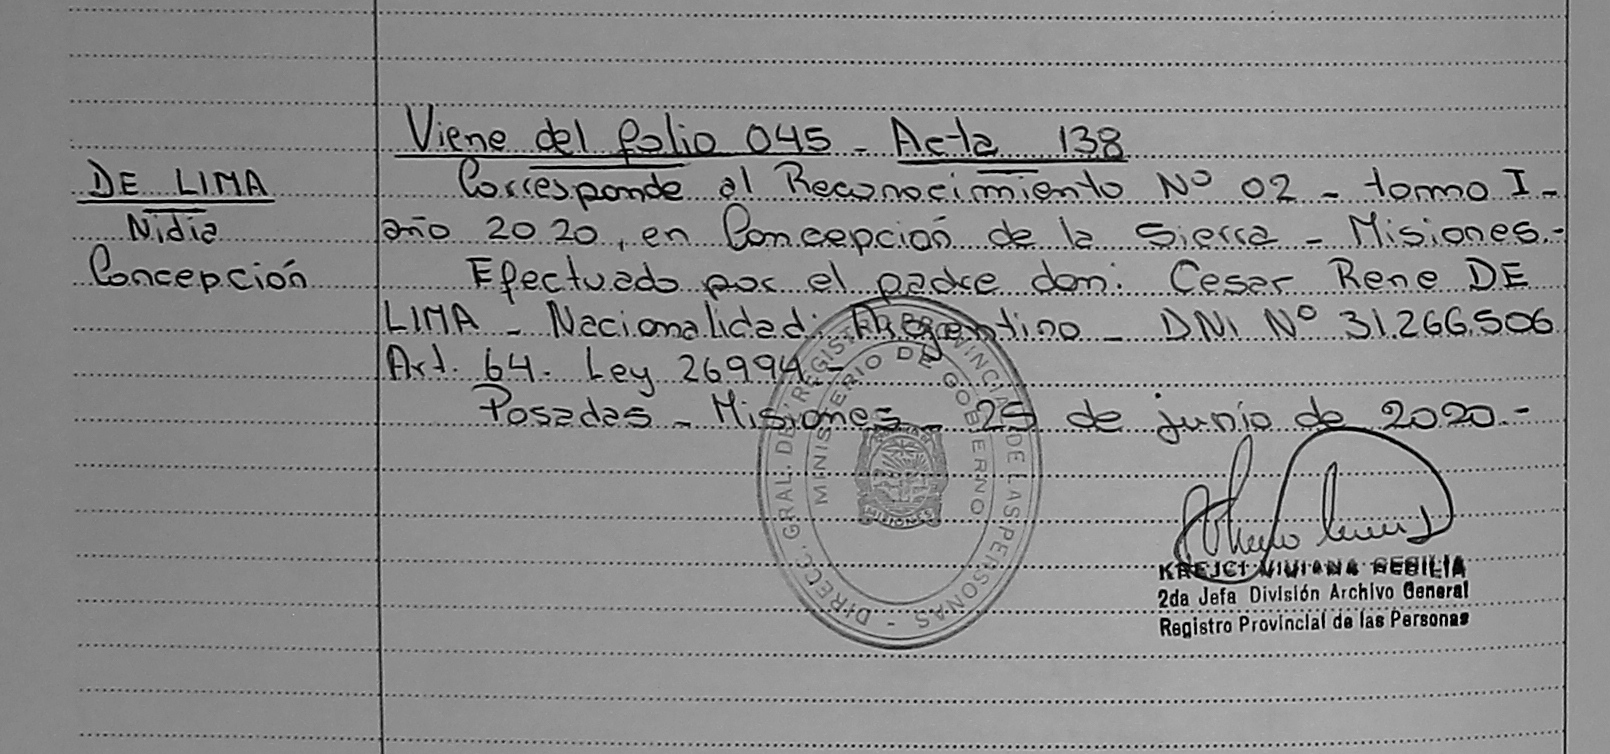 Viene del folio 045 - Acta 138
DE LIMA
Nidia
Concepción
Corresponde al Reconocimiento Nº 02 - tomo I -
año 2020, en Concepción de la Sierra - Misiones.-
Efectuado por el padre don: Cesar Rene DE
LIMA - Nacionalidad: Argentino - DNI Nº 31.266.506
Art. 64. Ley 26994.-
Posadas - Misiones - 25 de junio de 2020.-
DIRECC. GRAL. DEL REGISTRO PROVINCIAL DE LAS PERSONAS -
MINISTERIO DE GOBIERNO
MISIONES
KREJCI VIVIANA CECILIA
2da Jefa División Archivo General
Registro Provincial de las Personas